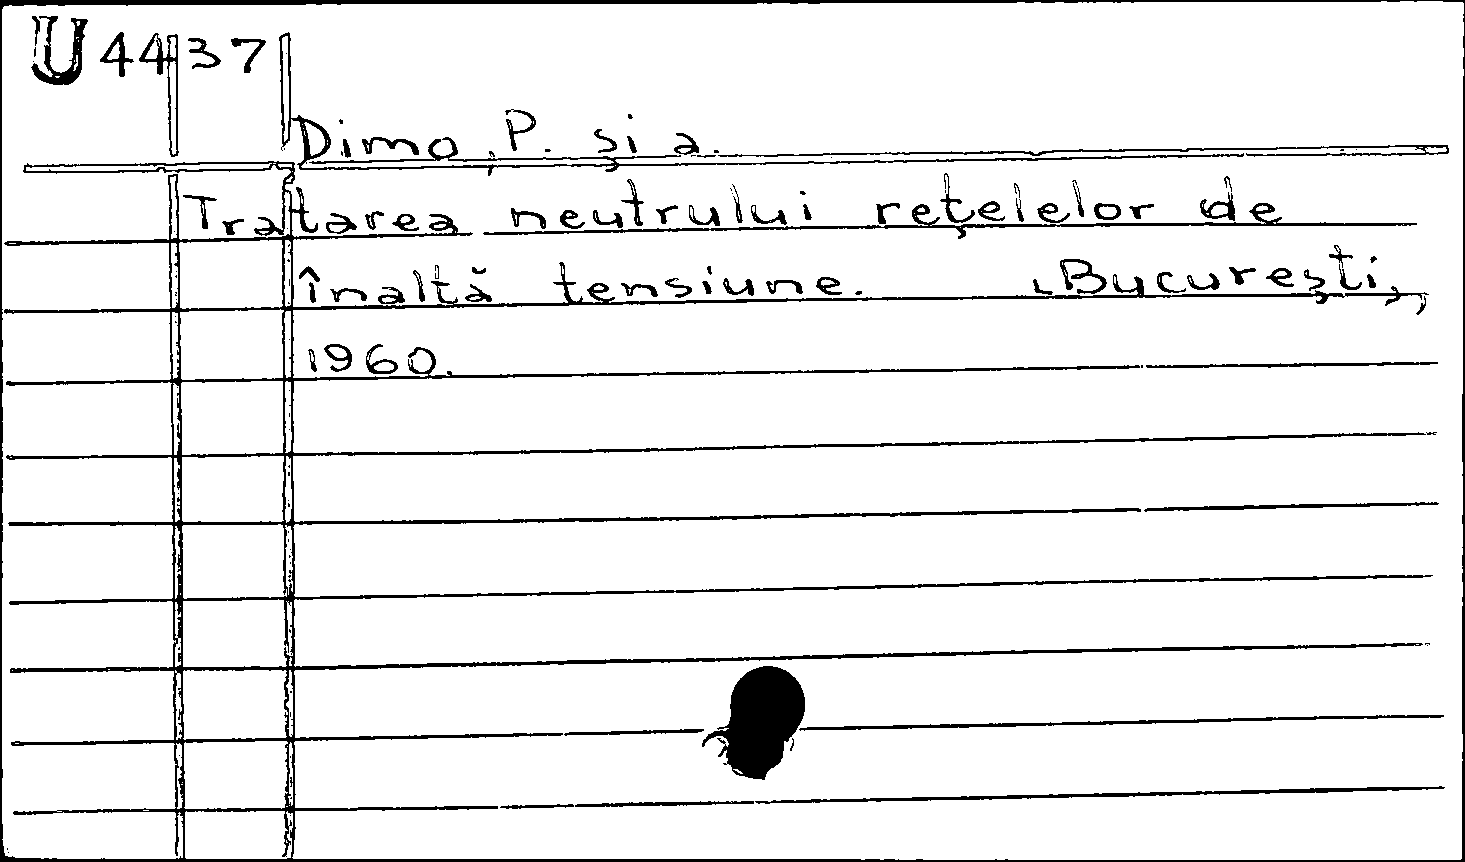 U 4437
Dimo, P. și a.
Tratarea neutrului rețelelor de
înaltă tensiune. București,
1960.